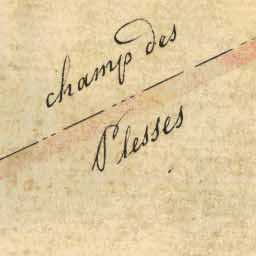 champ des
Plesses